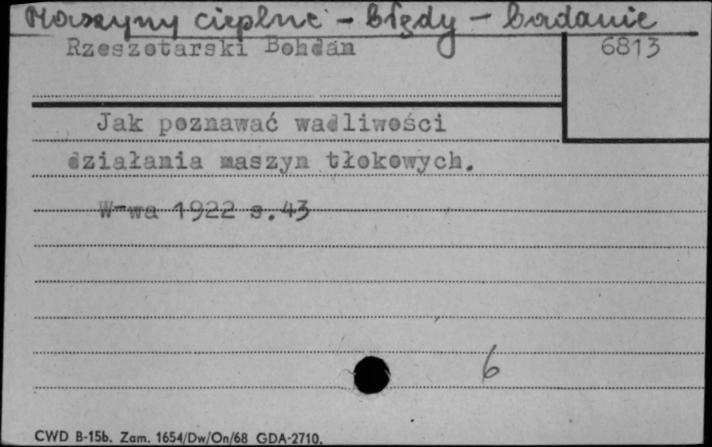 Maszyny cieplne - błędy - badanie
Rzeszotarski Bohdan
6813
Jak poznawać wadliwości
działania maszyn tłokowych.
W-wa 1922 s.43
6
CWD B-15b. Zam. 1654/Dw/On/68 GDA-2710.